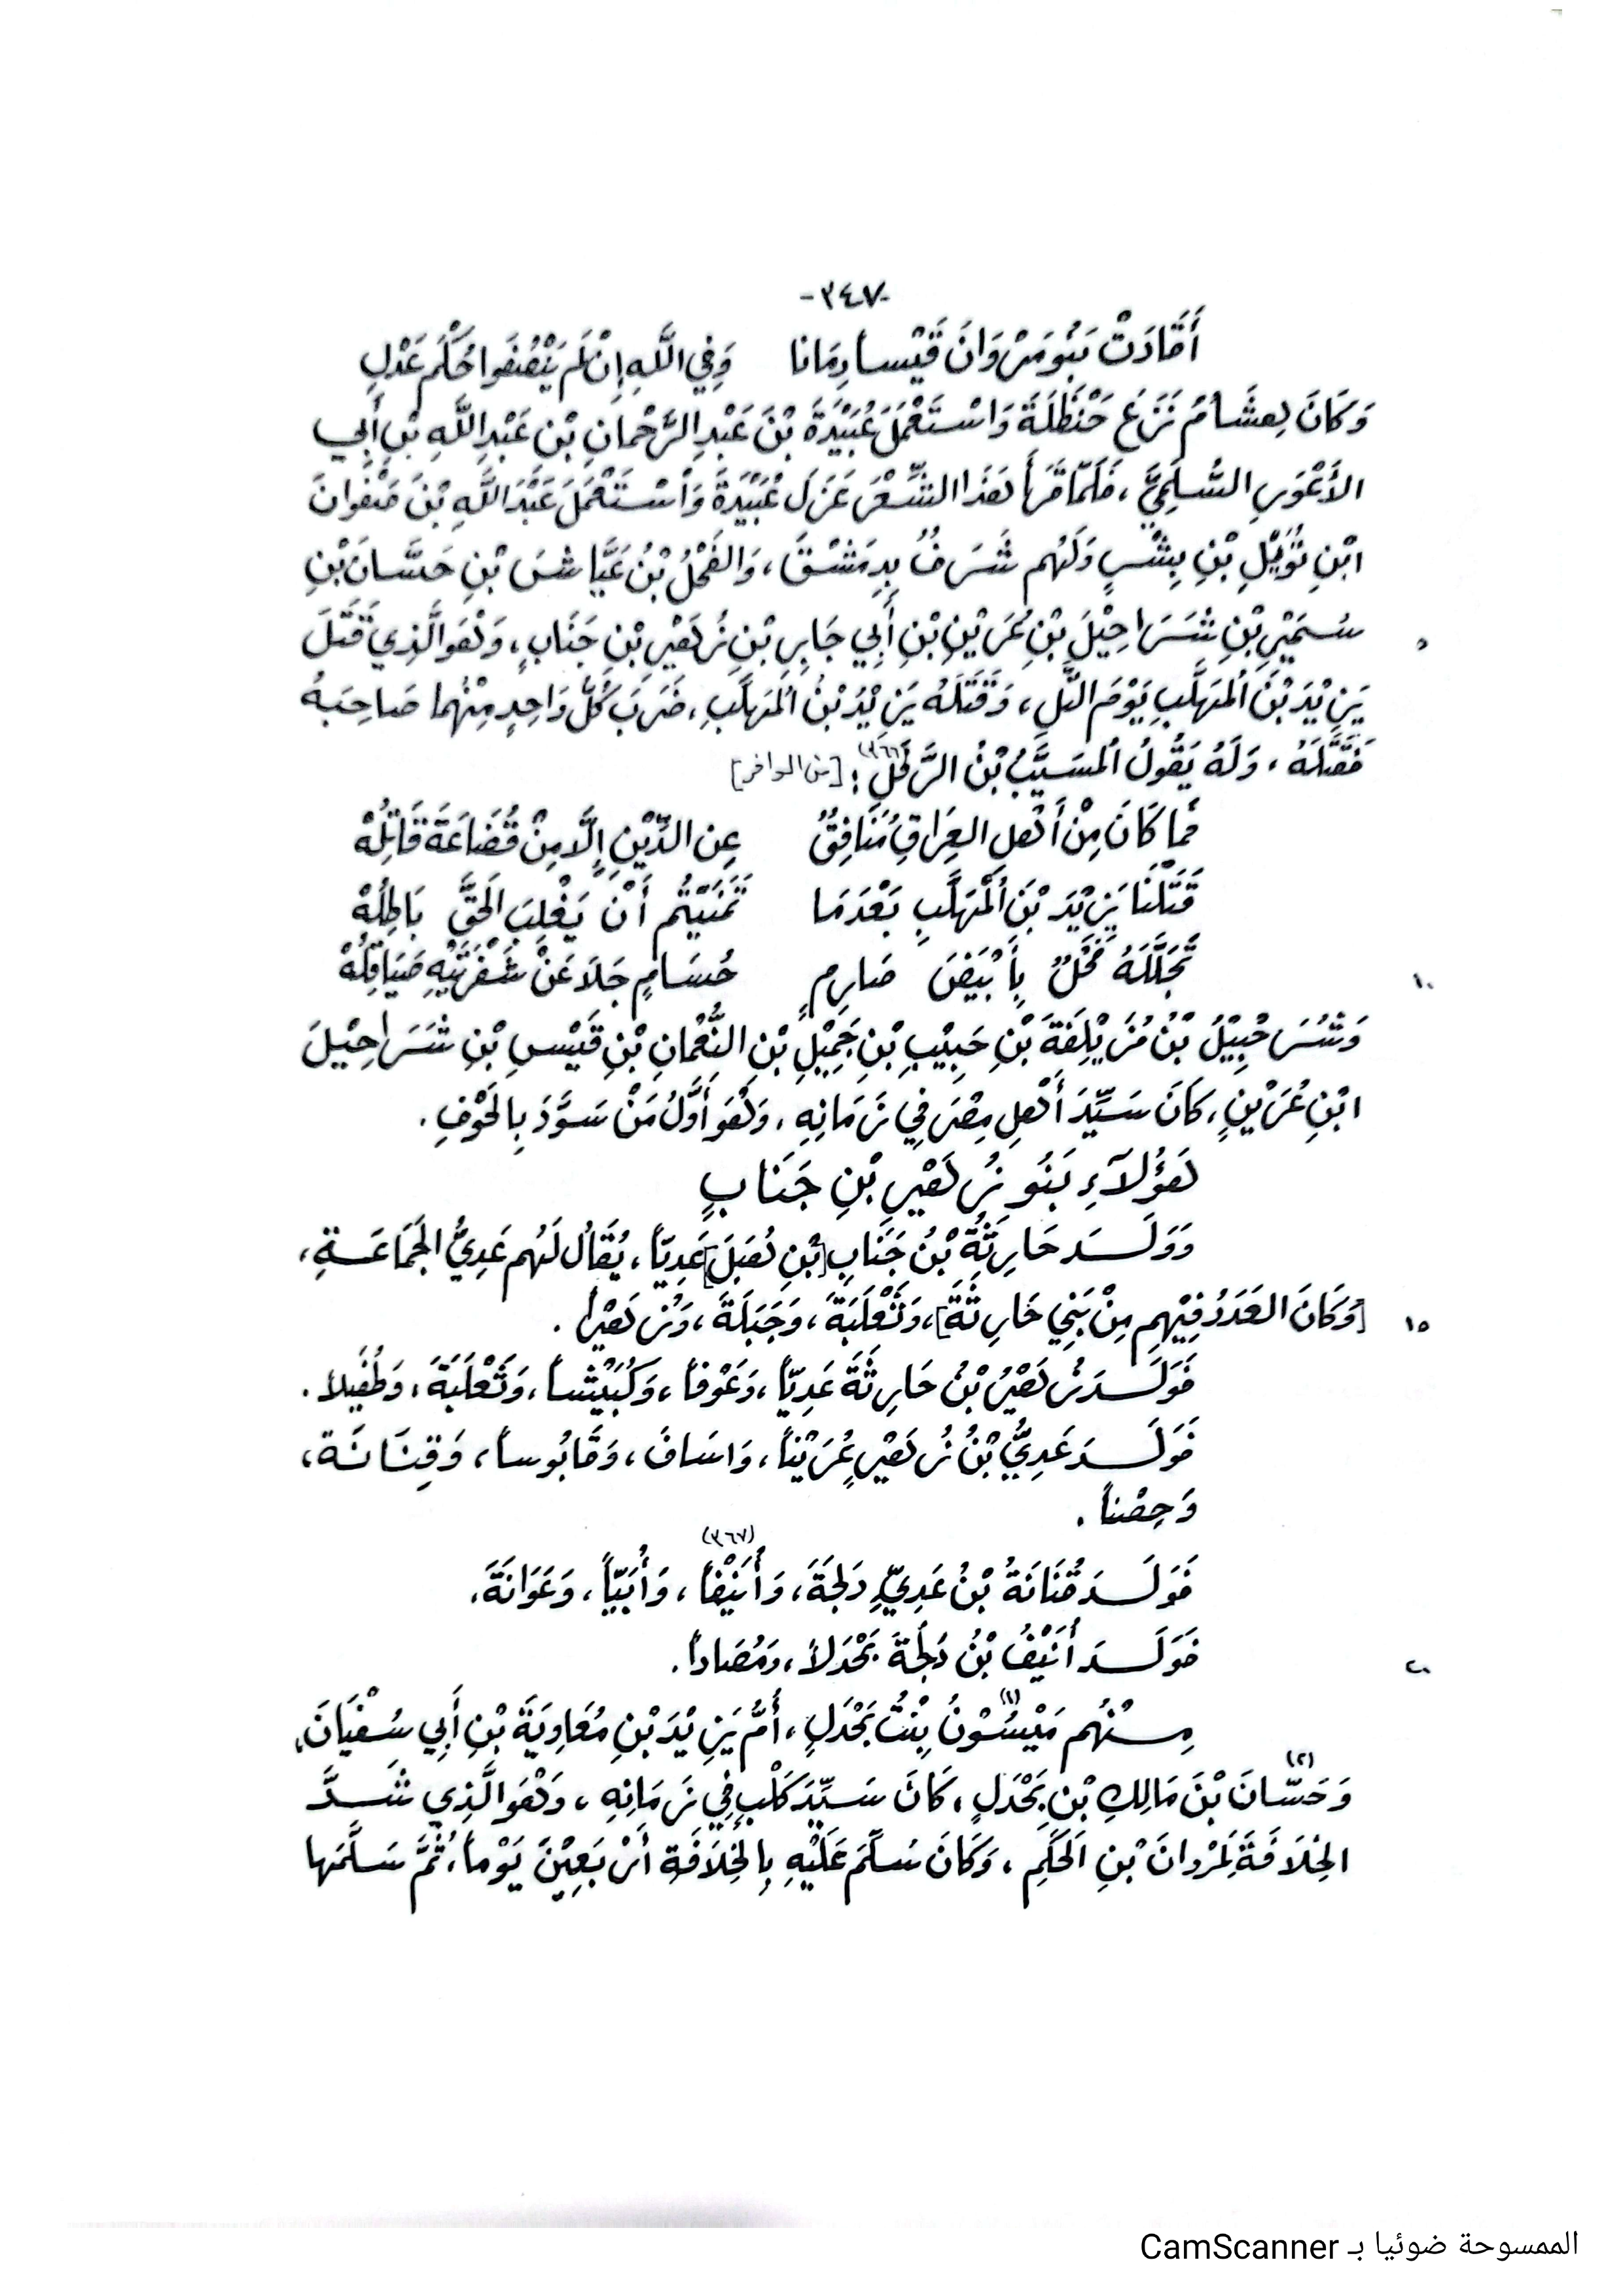 -٣٤٧-
أَفَادَتْ بَنُو مَرْوَانَ قَيْساً دِمَانَا وَفِي اللَّهِ إِنْ لَمْ يُنْصِفُوا حُكْمُ عَدْلِ
وَكَانَ هِشَامُ نَزَعَ حَنْظَلَةَ وَاسْتَعْمَلَ عُبَيْدَةَ بْنَ عَبْدِ الرَّحْمانِ بْنِ عَبْدِ اللَّهِ بْنِ أَبِي
الأَعْوَرِ السُّلَمِيَّ، فَلَمَّا قَرَأَ هَذَا الشِّعْرَ عَزَلَ عُبَيْدَةَ وَاسْتَعْمَلَ عَبْدَ اللَّهِ بْنَ صَفْوَانَ
ابْنِ تُوَيْلِ بْنِ بِشْرٍ وَلَهُم شَرَفٌ بِدِمَشْقَ، وَالفَحْلُ بْنُ عَيَّاشِ بْنِ حَسَّانَ بْنِ
سُمَيْرِ بْنِ شَرَاحِيْلَ بْنِ عُرَيْنِ بْنِ أَبِي جَابِرِ بْنِ زُهَيْرِ بْنِ جَنَابٍ، وَهُوَ الَّذِي قَتَلَ ٥
يَزِيْدَ بْنَ الْمُهَلَّبِ يَوْمَ التَّلِ، وَقَتَلَهُ يَزِيْدُ بْنُ الْمُهَلَّبِ، ضَرَبَ كُلُّ وَاحِدٍ مِنْهُما صَاحِبَهُ
فَقَتَلَهُ، وَلَهُ يَقُولُ الْمُسَيَّبُ بْنُ الرِّفَلِّ(٣٦٦): [من الوافر]
فَمَا كَانَ مِنْ أَهْلِ العِرَاقِ مُنَافِقٌ عِنِ الدِّيْنِ إِلَّا مِنْ قُضَاعَةَ قَاتِلُهْ
قَتَلْنَا يَزِيْدَ بْنَ الْمُهَلَّبِ بَعْدَمَا تَمَنَّيْتُم أَنْ يَغْلِبَ الحَقَّ بَاطِلُهْ
تَجَلَّلَهُ فَحْلٌ بِأَبْيَضَ صَارِمٍ حُسَامٍ جَلَا عَنْ شَفْرَتَيْهِ صَيَاقِلُهْ ١٠
وَشُرَحْبِيْلُ بْنُ مُزَيْلِفَةَ بْنِ حَبِيْبِ بْنِ جَمِيْلِ بْنِ النُّعْمَانِ بْنِ قَيْسِ بْنِ شَرَاحِيْلَ
ابْنِ عُرَيْنٍ، كَانَ سَيِّدَ أَهْلِ مِصْرَ فِي زَمَانِهِ، وَهُوَ أَوَّلُ مَنْ سَوَّدَ بِالحَوْفِ.
هَؤُلآءِ بَنُو زُهَيْرِ بْنِ جَنَابٍ
وَوَلَدَ حَارِثَةُ بْنُ جَنَابِ [بْنِ هُبَلَ] عَدِيّاً، يُقَالُ لَهُم عَدِيُّ الجَمَاعَةِ،
[وَكَانَ العَدَدُ فِيْهِم مِنْ بَنِي حَارِثَةَ]، وَثَعْلَبَةَ، وَجَبَلَةَ، وَزُهَيْراً. ١٥
فَوَلَدَ زُهَيْرُ بْنُ حَارِثَةَ عَدِيّاً، وَعَوْفاً، وَكُبَيْشاً، وَثَعْلَبَةَ، وَطُفَيلاً.
فَوَلَدَ عَدِيُّ بْنُ زُهَيْرٍ عُرَيْناً، وَاسَافَ، وَقَابُوساً، وَقِنَانَة،
وَحِصْناً.
فَوَلَدَ قُنَانَةُ بْنُ عَدِيِّ دَلجَةَ، وَأُنَيْفاً(٣٦٧)، وَأُبَيّاً، وَعَوَانَةَ،
فَوَلَدَ أُنَيْفُ بْنُ دَلجَةَ بَحْدَلاً، وَمُصَاداً. ٢٠
مِنْهُم مَيْسُوْنُ(١) بِنْتُ بَحْدَلٍ، أُمُّ يَزِيْدَ بْنِ مُعَاوِيَةَ بْنِ أَبِي سُفْيَانَ،
وَحَسَّانَ(٢) بْنَ مَالِكِ بْنِ بَحْدَلٍ، كَانَ سَيِّدَ كَلْبٍ فِي زَمَانِهِ، وَهُوَ الَّذِي شَدَّ
الخِلَافَةَ لِمَرْوانَ بْنِ الحَكَمِ، وَكَانَ سُلِّمَ عَلَيْهِ بِالخِلَافَةِ أَرْبَعِيْنَ يَوْماً، ثُمَّ سَلَّمَهَا
الممسوحة ضوئيا بـ CamScanner